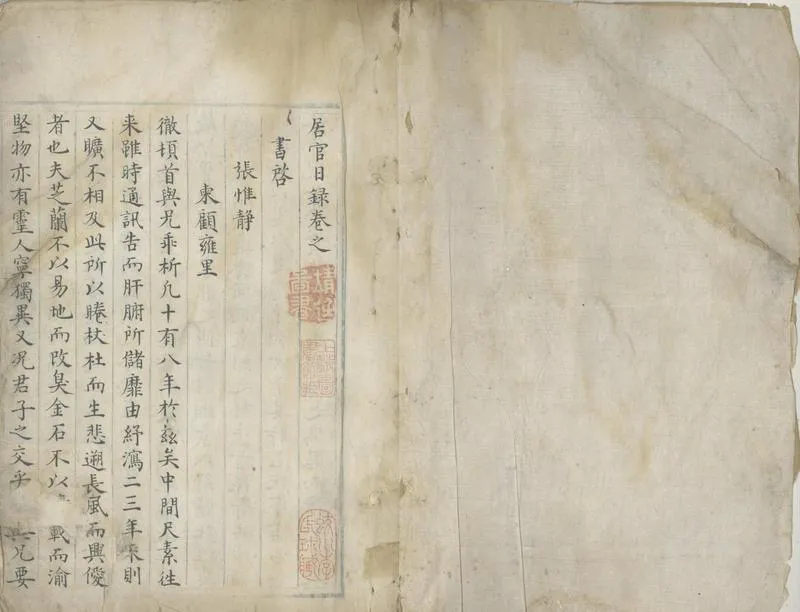 居官日録卷之
書啓
張惟静
東顧雍里
徹頓首與兄乖析凡十有八年於兹矣中間尺素徃
来雖時通訊告而肝腑所儲靡由紓瀉二三年来則
又曠不相及此所以睠杕杜而生悲遡長風而興僾
者也夫芝蘭不以易地而改臭金石不以 戰而渝
堅物亦有靈人寧獨異又况君子之交乎 兄要